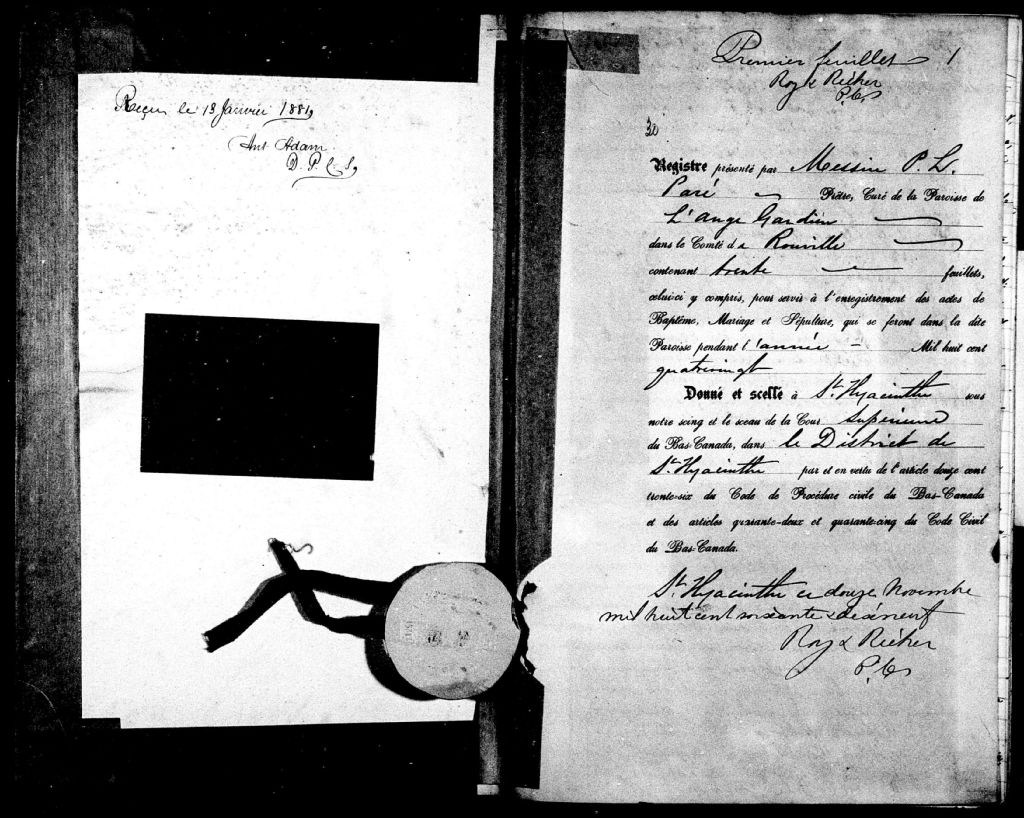 Reçu le 13 Janvier 1881,
Ant Adam
D. P. C. S,
Premier feuillet 1
Roy & Richer
P. C. S
30
Registre présenté par Messire P. L.
Paré Prêtre, Curé de la Paroisse de
L'Ange Gardien
dans le Comté de Rouville
contenant trente feuillets,
celui-ci y compris, pour servir à l'enregistrement des actes de
Baptême, Mariage et Sépulture, qui se feront dans la dite
Paroisse pendant l'année Mil huit cent
quatrevingt
Donné et scellé à St. Hyacinthe sous
notre seing et le sceau de la Cour Supérieure
du Bas-Canada, dans le District de
St. Hyacinthe par et en vertu de l'article douze cent
trente-six du Code de Procédure civile du Bas-Canada
et des articles quarante-deux et quarante-cinq du Code Civil
du Bas-Canada.
St. Hyacinthe ce douze Novembre
mil huit cent soixante & dixneuf
Roy & Richer
P. C. S